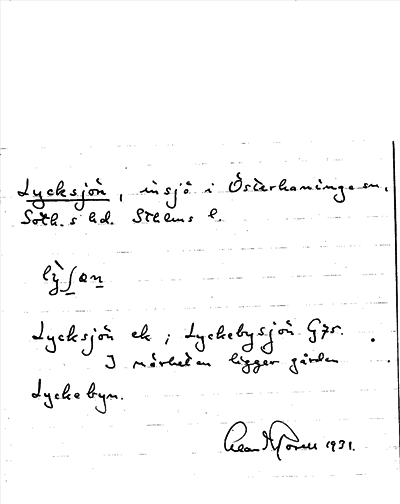 Lycksjön, insjö i Österhaninge sn,
Soth.s hd. Sthlms l.
Lycksjön ek; Lyckebysjön G75.
I närheten ligger gården
Lyckebyn.
1931.